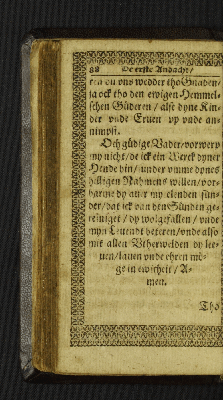 88 De erste Andacht/
ren du vns wedder tho Gnaden/
ja ock tho den ewigen Hemmel-
schen Güderen / alse dyne Kin-
der vnde Eruen vp vnde an-
nimpst.
Och güdige Vader/vorwerp
my nicht/de ick ein Werck dyner
Hende bin/ vnder vmme dynes
hilligen Nahmens willen/vor-
barme dy auer my elenden sün-
der/dat ick van den Sünden ge-
reiniget / dy wolgefallen / vnde
myn Leuendt beteren/vnde also
mit allen Vtherwelden dy lee-
uen/lauen vnde ehren mö-
ge in ewicheit / A-
men.
Tho